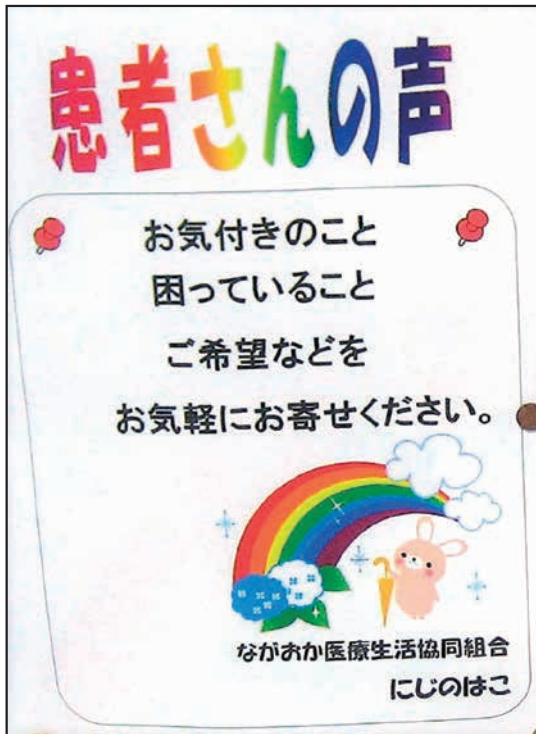 患者さんの声
お気付きのこと
困っていること
ご希望などを
お気軽にお寄せください。
ながおか医療生活協同組合
にじのはこ